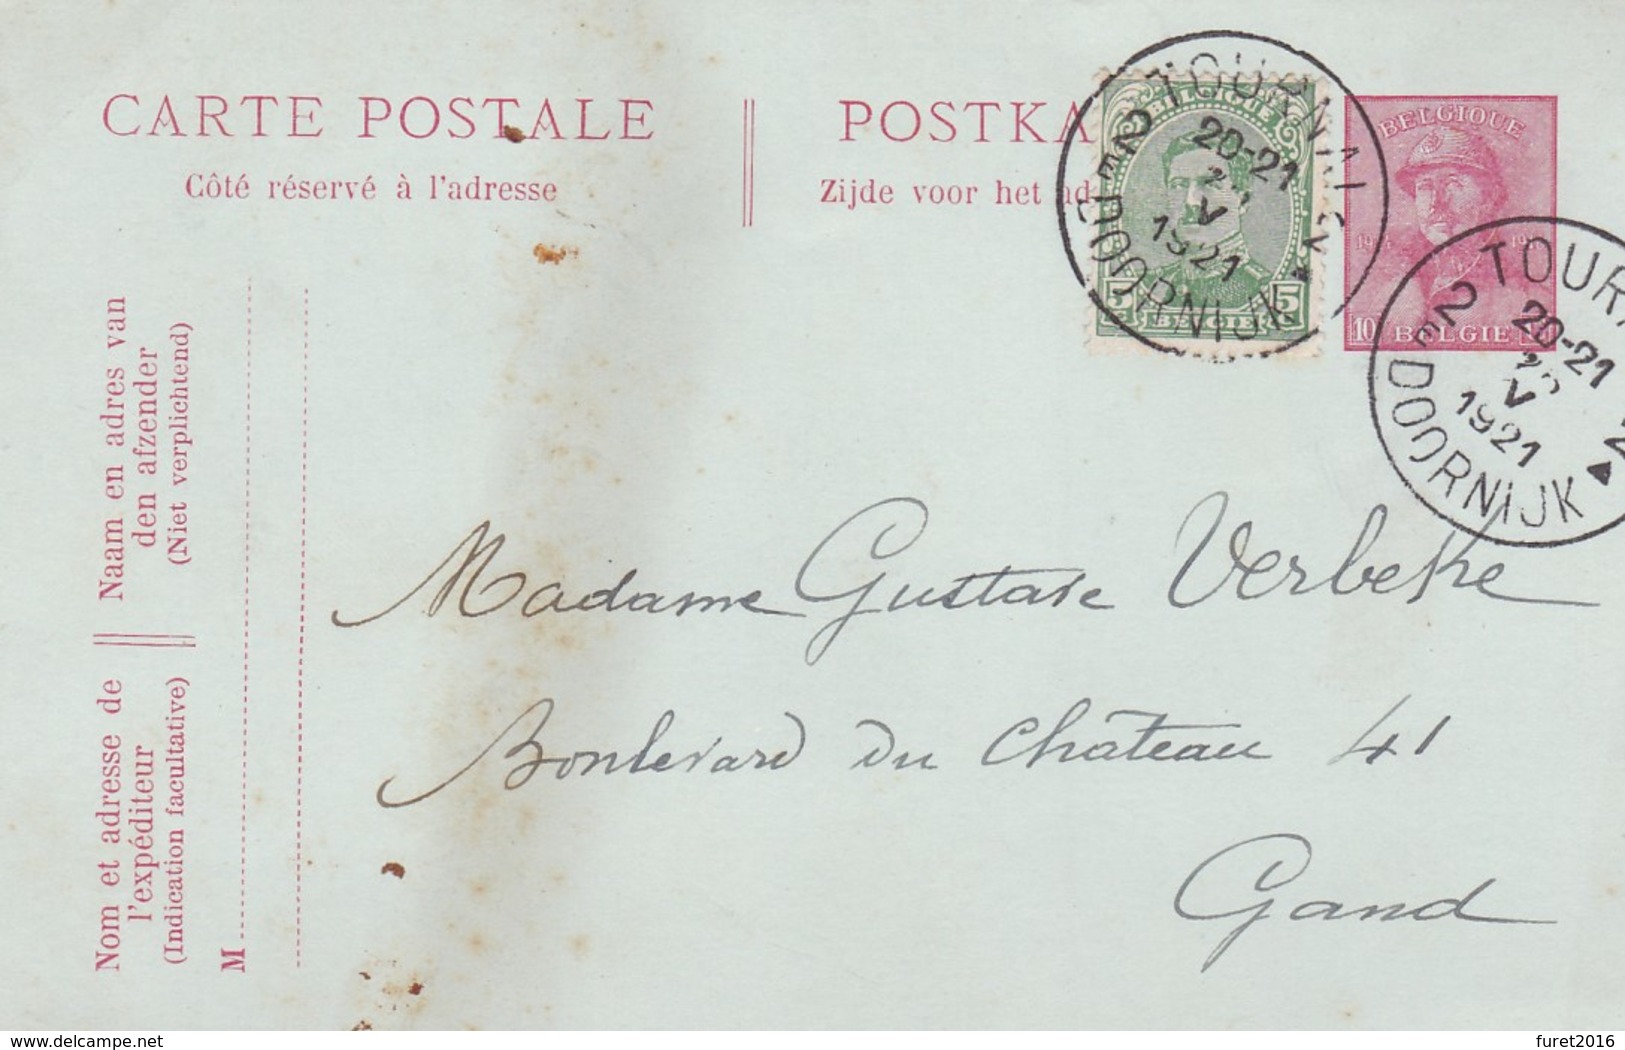 CARTE POSTALE
Côté réservé à l'adresse
POSTKA
Zijde voor het ad
BELGIQUE
5 BELGIË 5
TOURNAI 2
20-21
V
1921
2E DOORNIJK
BELGIQUE
10 BELGIE
2 TOURN
20-21
V
1921
2E DOORNIJK
Naam en adres van
den afzender
(Niet verplichtend)
Nom et adresse de
l'expéditeur
(Indication facultative)
M
Madame Gustave Verbeke
Boulevard du Château 41
Gand
www.delcampe.net
furet2016